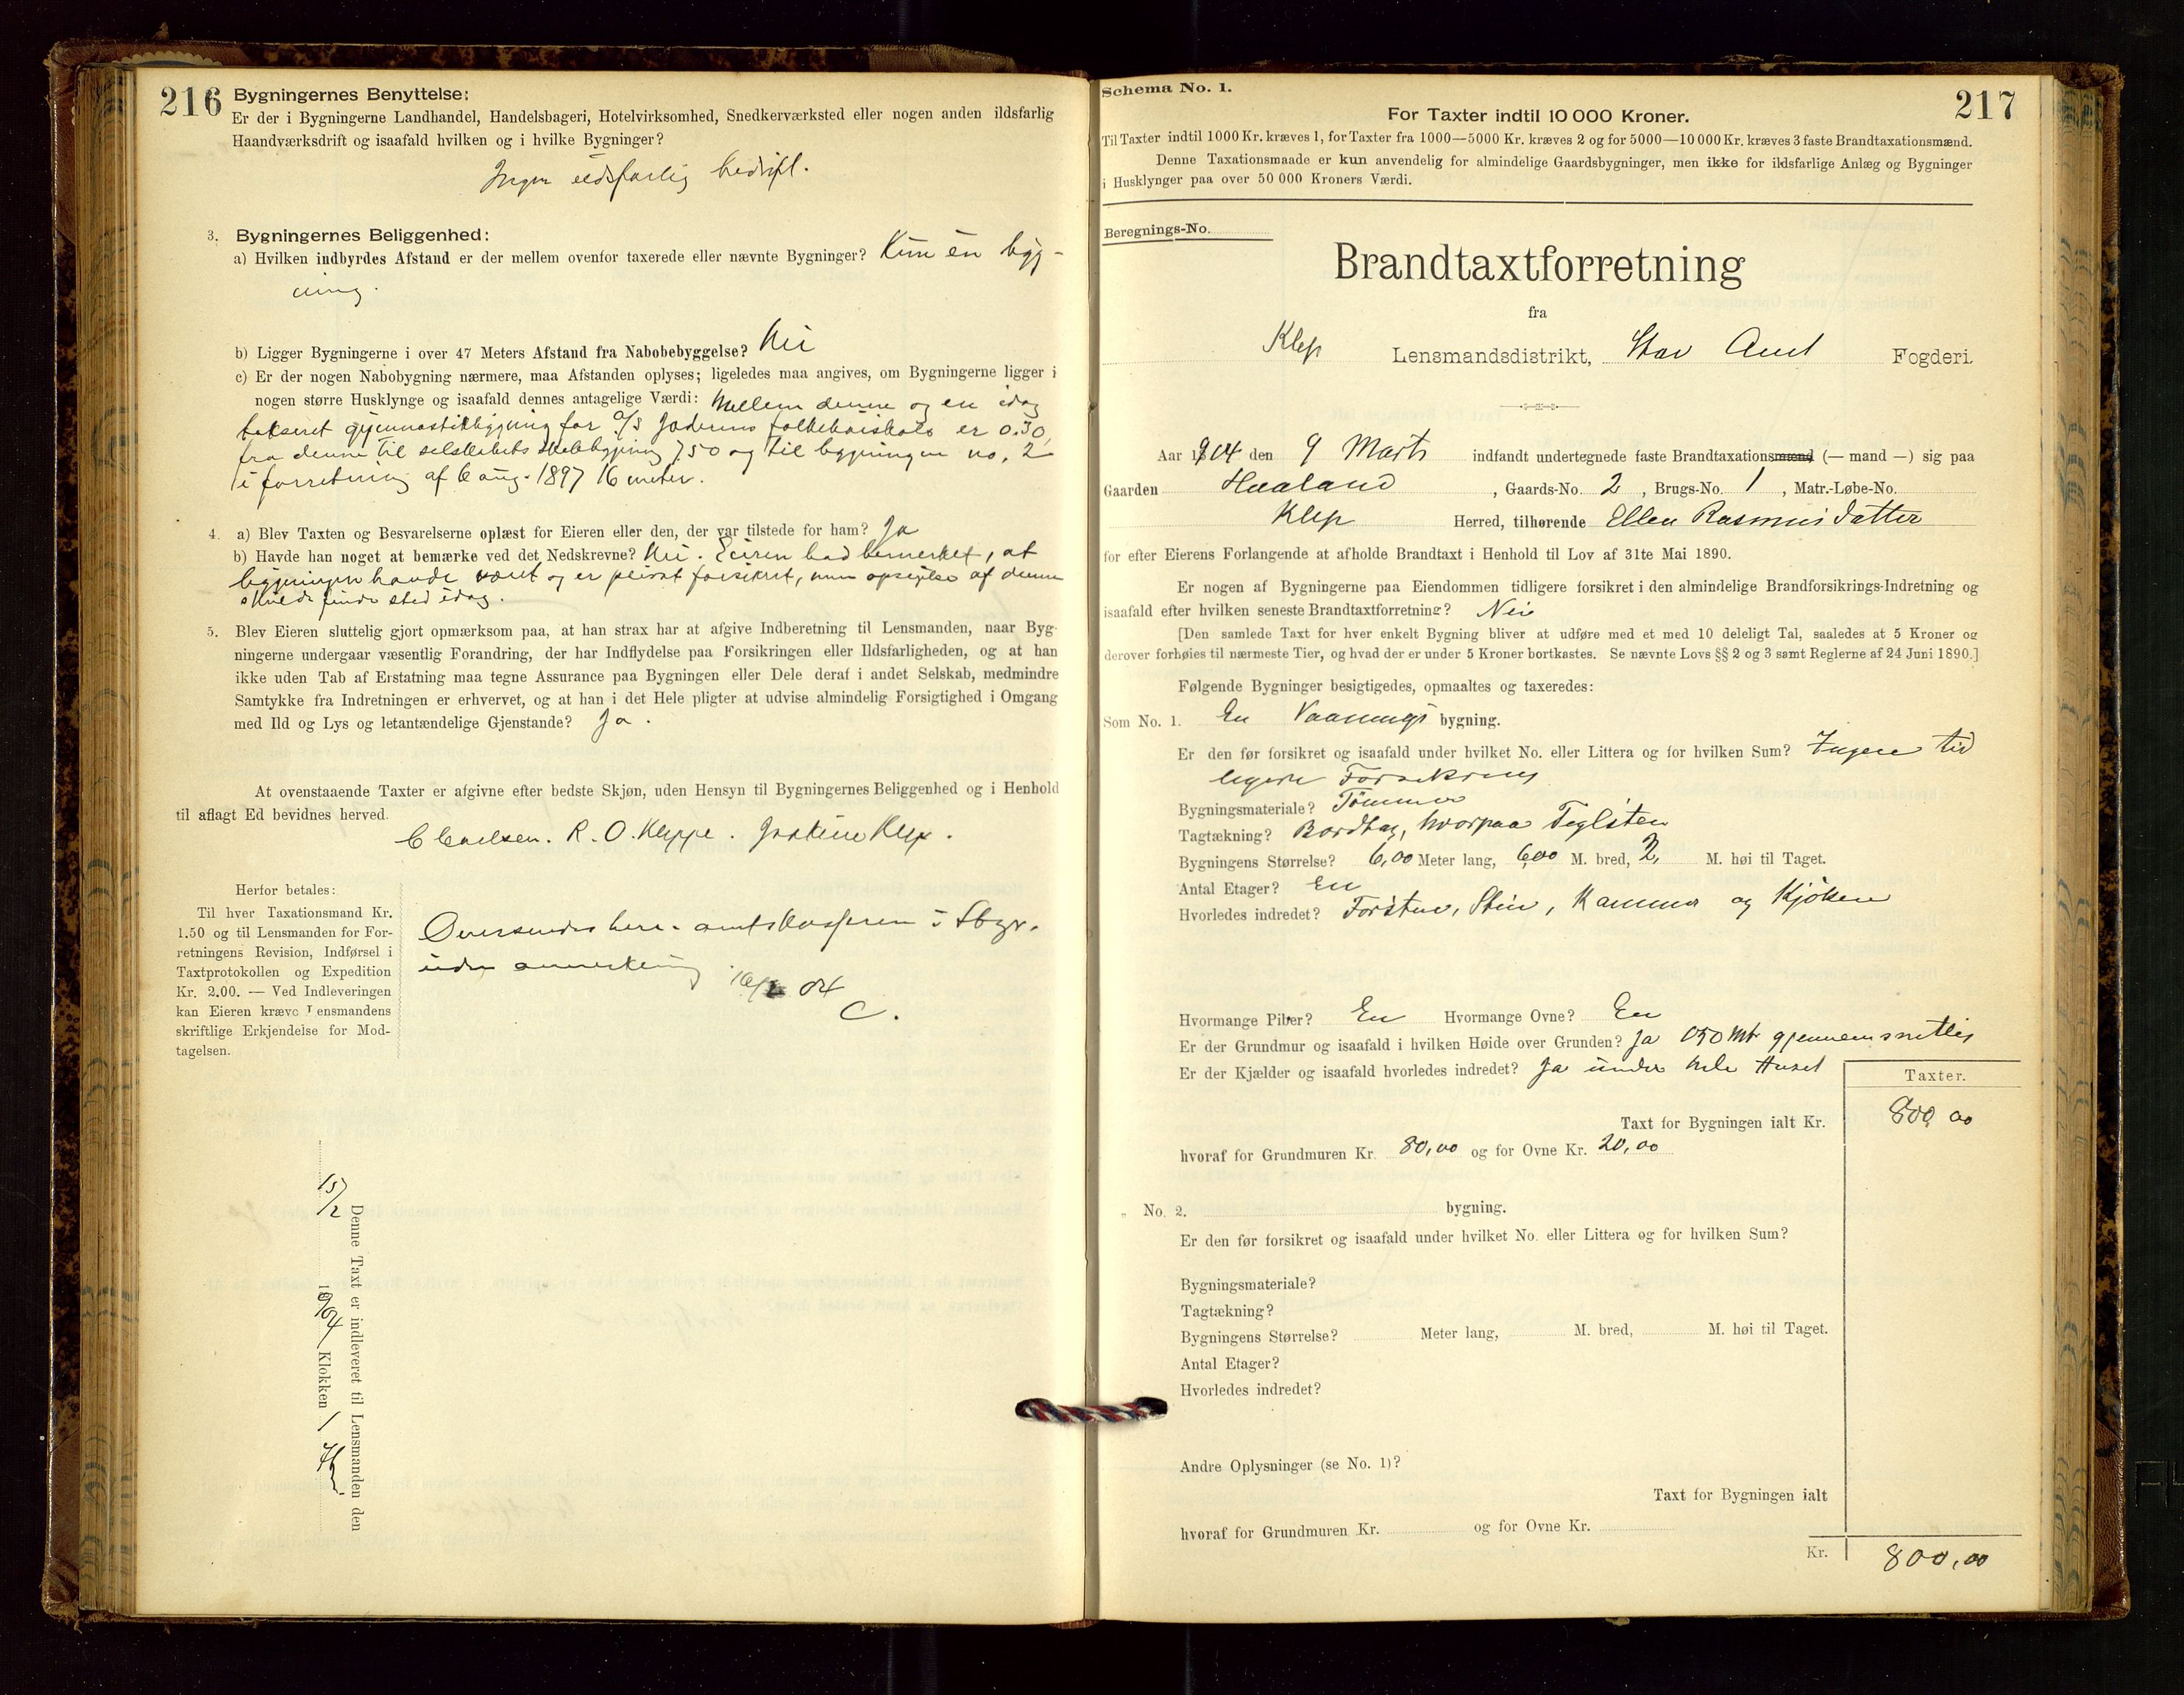 216
Bygningernes Benyttelse:
Er der i Bygningerne Landhandel, Handelsbageri, Hotelvirksomhed, Snedkerværksted eller nogen anden ildsfarlig
Haandværksdrift og isaafald hvilken og i hvilke Bygninger?
Ingen ildsfarlig bedrift.
3. Bygningernes Beliggenhed:
a) Hvilken indbyrdes Afstand er der mellem ovenfor taxerede eller nævnte Bygninger? Kun en byg-
ning.
b) Ligger Bygningerne i over 47 Meters Afstand fra Nabobebyggelse? Nei
c) Er der nogen Nabobygning nærmere, maa Afstanden oplyses; ligeledes maa angives, om Bygningerne ligger i
nogen større Husklynge og isaafald dennes antagelige Værdi: Mellem denne og en idag
takseret gymnastikbygning for A/S Jæderens folkehøiskole er 0.30,
fra denne til selskabets skolebygning 750 og til bygningen no. 2
i forretning af 6 aug. 1897 16 meter.
4. a) Blev Taxten og Besvarelserne oplæst for Eieren eller den, der var tilstede for ham? Ja
b) Havde han noget at bemærke ved det Nedskrevne? Nei. Eieren had bemerket, at
bygningen havde været og er privat forsikret, men opsigelse af denne
skulde finde sted idag.
5. Blev Eieren sluttelig gjort opmærksom paa, at han strax har at afgive Indberetning til Lensmanden, naar Byg-
ningerne undergaar væsentlig Forandring, der har Indflydelse paa Forsikringen eller Ildsfarligheden, og at han
ikke uden Tab af Erstatning maa tegne Assurance paa Bygningen eller Dele deraf i andet Selskab, medmindre
Samtykke fra Indretningen er erhvervet, og at han i det Hele pligter at udvise almindelig Forsigtighed i Omgang
med Ild og Lys og letantændelige Gjenstande? Ja.
At ovenstaaende Taxter er afgivne efter bedste Skjøn, uden Hensyn til Bygningernes Beliggenhed og i Henhold
til aflagt Ed bevidnes herved.
R. O. Kleppe. Klep.
Herfor betales:
Til hver Taxationsmand Kr.
1.50 og til Lensmanden for For-
retningens Revision, Indførsel i
Taxtprotokollen og Expedition
Kr. 2.00. — Ved Indleveringen
kan Eieren kræve Lensmandens
skriftlige Erkjendelse for Mod-
tagelsen.
Oversendes herr amtskassereren i Stvgr.
uden anmerkning
04
C.
Denne Taxt er indleveret til Lensmanden den
15/2 1904 Klokken 1
217
Schema No. 1.
For Taxter indtil 10 000 Kroner.
Til Taxter indtil 1000 Kr. kræves 1, for Taxter fra 1000—5000 Kr. kræves 2 og for 5000—10 000 Kr. kræves 3 faste Brandtaxationsmænd.
Denne Taxationsmaade er kun anvendelig for almindelige Gaardsbygninger, men ikke for ildsfarlige Anlæg og Bygninger
i Husklynger paa over 50 000 Kroners Værdi.
Beregnings-No.
Brandtaxtforretning
fra
Klep Lensmandsdistrikt, Stav Amt Fogderi.
Aar 1904 den 9 Marts indfandt undertegnede faste Brandtaxationsmænd (— mand —) sig paa
Gaarden Haaland, Gaards-No. 2, Brugs-No. 1, Matr.-Løbe-No.
Klep Herred, tilhørende Ellen Rasmusdatter
for efter Eierens Forlangende at afholde Brandtaxt i Henhold til Lov af 31te Mai 1890.
Er nogen af Bygningerne paa Eiendommen tidligere forsikret i den almindelige Brandforsikrings-Indretning og
isaafald efter hvilken seneste Brandtaxtforretning? Nei
[Den samlede Taxt for hver enkelt Bygning bliver at udføre med et med 10 deleligt Tal, saaledes at 5 Kroner og
derover forhøies til nærmeste Tier, og hvad der er under 5 Kroner bortkastes. Se nævnte Lovs §§ 2 og 3 samt Reglerne af 24 Juni 1890.]
Følgende Bygninger besigtigedes, opmaaltes og taxeredes:
Som No. 1. En Vaanings bygning.
Er den før forsikret og isaafald under hvilket No. eller Littera og for hvilken Sum? Ingen tid
ligere Forsikring
Bygningsmateriale? Tømmer
Tagtækning? Bordtag, hvorpaa Teglsten
Bygningens Størrelse? 6,00 Meter lang, 6,00 M. bred, 2, M. høi til Taget.
Antal Etager? En
Hvorledes indredet? Forstue, Stue, Kammer og Kjøken
Hvormange Piber? En Hvormange Ovne? En
Er der Grundmur og isaafald i hvilken Høide over Grunden? Ja 050 Mtr gjennemsnitlig
Er der Kjælder og isaafald hvorledes indredet? Ja under hele Huset
Taxter.
Taxt for Bygningen ialt Kr. 800,00
hvoraf for Grundmuren Kr. 80,00 og for Ovne Kr. 20,00
„ No. 2. bygning.
Er den før forsikret og isaafald under hvilket No. eller Littera og for hvilken Sum?
Bygningsmateriale?
Tagtækning?
Bygningens Størrelse? Meter lang, M. bred, M. høi til Taget.
Antal Etager?
Hvorledes indredet?
Andre Oplysninger (se No. 1)?
Taxt for Bygningen ialt
hvoraf for Grundmuren Kr. og for Ovne Kr.
Kr. 800,00